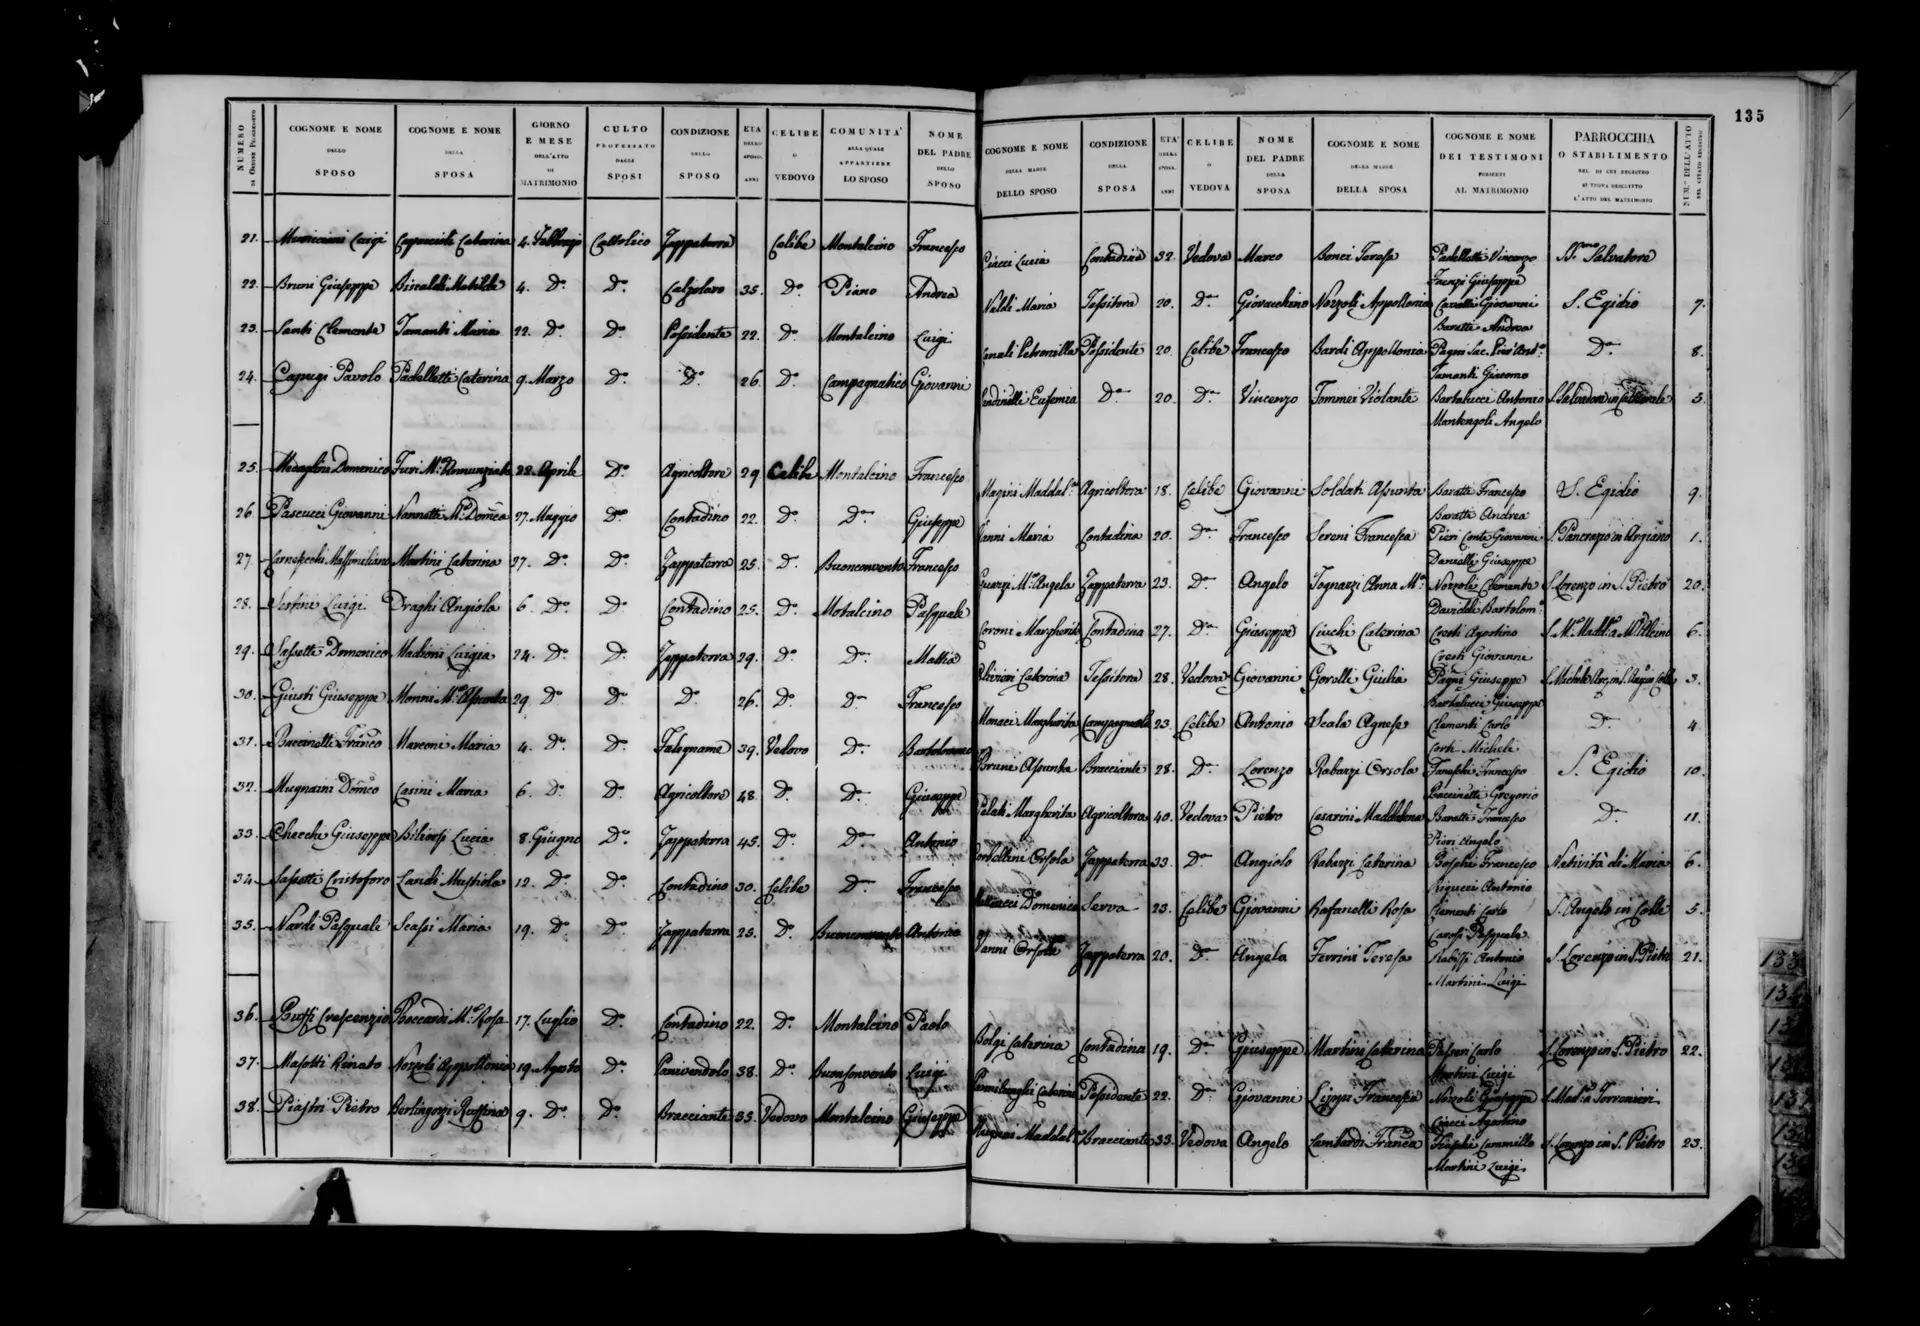 135
NUMERO DI ORDINE PROGRESSIVO
COGNOME E NOME DELLO SPOSO
COGNOME E NOME DELLA SPOSA
GIORNO E MESE DELL'ATTO DI MATRIMONIO
CULTO PROFESSATO DAGLI SPOSI
CONDIZIONE DELLO SPOSO
ETA DELLO SPOSO. ANNI
CELIBE O VEDOVO
COMUNITA' ALLA QUALE APPARTIENE LO SPOSO
NOME DEL PADRE DELLO SPOSO
COGNOME E NOME DELLA MADRE DELLO SPOSO
CONDIZIONE DELLA SPOSA
ETA' DELLA SPOSA. ANNI
CELIBE O VEDOVA
NOME DEL PADRE DELLA SPOSA
COGNOME E NOME DELLA MADRE DELLA SPOSA
COGNOME E NOME DEI TESTIMONI PRESENTI AL MATRIMONIO
PARROCCHIA O STABILIMENTO NEL DI CUI REGISTRO SI TROVA DESCRITTO L'ATTO DEL MATRIMONIO
NUM.° DELL'ATTO NEL CITATO REGISTRO
21. Luigi Caterina 4. Febbrajo Cattolico Zappaterra Celibe Montalcino Francesco Ciacci Lucia Contadina 32. Vedova Marco Bonci Teresa Padelletti Vincenzo Salvatore
Faenzi Giuseppe
22. Bruni Giuseppe Matilde 4. D.° D.° Calzolaro 35. D.° Piano Andrea Naldi Maria Tessitora 20. D.a Giovacchino Nozzoli Appollonia Giovanni S. Egidio 7.
Baratti Andrea
23. Santi Clemente Tamanti Maria 22. D.° D.° Possidente 22. D.° Montalcino Luigi Canali Petronilla Possidente 20. Celibe Francesco Bardi Appollonia Pagni Sac. D.a 8.
Tamanti Giacomo
24. Caprugi Pavolo Padelletti Caterina 9. Marzo D.° D.° 26. D.° Campagnatico Giovanni Eufemia D.a 20. D.a Vincenzo Tommei Violante Bartalucci Antonio S. Salvadore in 5.
Mantengoli Angelo
25. Medaglini Domenico Turi M.a Annunziata 22. Aprile D.° Agricoltore 29 Celibe Montalcino Francesco Magini Maddal.a Agricoltora 18. Celibe Giovanni Soldati Assunta Baratti Francesco S. Egidio 9.
Baratti Andrea
26. Pascucci Giovanni Nannetti M.a Dom.ca 27. Maggio D.° Contadino 22. D.° D.a Giuseppe Vanni Maria Contadina 20. D.a Francesco Sereni Francesca Pieri Conte Giovanni S. Pancrazio in Argiano 1.
Danielli Giuseppe
27. Massimiliano Martini Caterina 27. D.° D.° Zappaterra 25. D.° Buonconvento Francesco M.a Angela Zappaterra 23. D.a Angelo Tognazzi Anna M.a Nozzoli Clemente S. Lorenzo in S. Pietro 20.
Daviddi Bartolom.°
28. Sestini Luigi Draghi Angiola 6. D.° D.° Contadino 25. D.° Motalcino Pasquale Coroni Margherita Contadina 27. D.a Giuseppe Ciuchi Caterina Cresti Agostino 6.
Cresti Giovanni
29. Sassetti Domenico Madioni Luigia 24. D.° D.° Zappaterra 29. D.° D.a Mattia Olivieri Caterina Tessitora 28. Vedova Giovanni Gorelli Giulia Pagni Giuseppe 3.
Bartalucci Giuseppe
30. Giusti Giuseppe Monni M.a Assunta 29. D.° D.° D.° 26. D.° D.a Francesco Monaci Margherita Campagnola 23. Celibe Antonio Scala Agnese Clementi Carlo D.a 4.
Corti Michele
31. Baccinetti Franco Marconi Maria 4. D.° D.° Falegname 39. Vedovo D.a Bartolomeo Bruni Assunta Bracciante 28. D.a Lorenzo Rabazzi Orsola Francesco S. Egidio 10.
Baccinetti Gregorio
32. Mugnaini Dom.co Casini Maria 6. D.° D.° Agricoltore 48. D.° D.a Giuseppe Pelati Margherita Agricoltora 40. Vedova Pietro Cesarini Maddalena Baratti Francesco D.a 11.
Pieri Angelo
33. Checchi Giuseppe Biliorsi Lucia 8. Giugno D.° Zappaterra 45. D.° D.a Antonio Orsola Zappaterra 33. D.a Angiolo Rabazzi Caterina Boschi Francesco Natività di Maria 6.
Rigucci Antonio
34. Sassetti Cristoforo Landi Mustiola 12. D.° D.° Contadino 30. Celibe D.a Francesco Domenica Serva 23. Celibe Giovanni Rafanelli Rosa Clementi Carlo S. Angelo in Colle 5.
Carosi Pasquale
35. Nardi Pasquale Scassi Maria 19. D.° D.° Zappaterra 25. D.° Buonconvento Antonio Vanni Orsola Zappaterra 20. D.a Angelo Ferrini Teresa Antonio S. Lorenzo in S. Pietro 21.
Martini Luigi
36. Crescenzio Beccardi M.a Rosa 17. Luglio D.° Contadino 22. D.° Montalcino Paolo Bolgi Caterina Contadina 19. D.a Giuseppe Martini Catterina Carlo S. Lorenzo in S. Pietro 22.
Martini Luigi
37. Masotti Rinato Nozzoli Appollonia 19. Agosto D.° Panivendolo 38. D.° Buonconvento Luigi Caterina Possidente 22. D.a Giovanni Lippi Francesca Nozzoli Giuseppe Torrenieri
Ciacci Agostino
38. Piastri Pietro Berlingozzi Ruffina 9. D.° D.° Bracciante 35. Vedovo Montalcino Giuseppe Maddal.a Bracciante 33. Vedova Angelo Lambardi Franca Cammillo S. Lorenzo in S. Pietro 23.
Martini Luigi